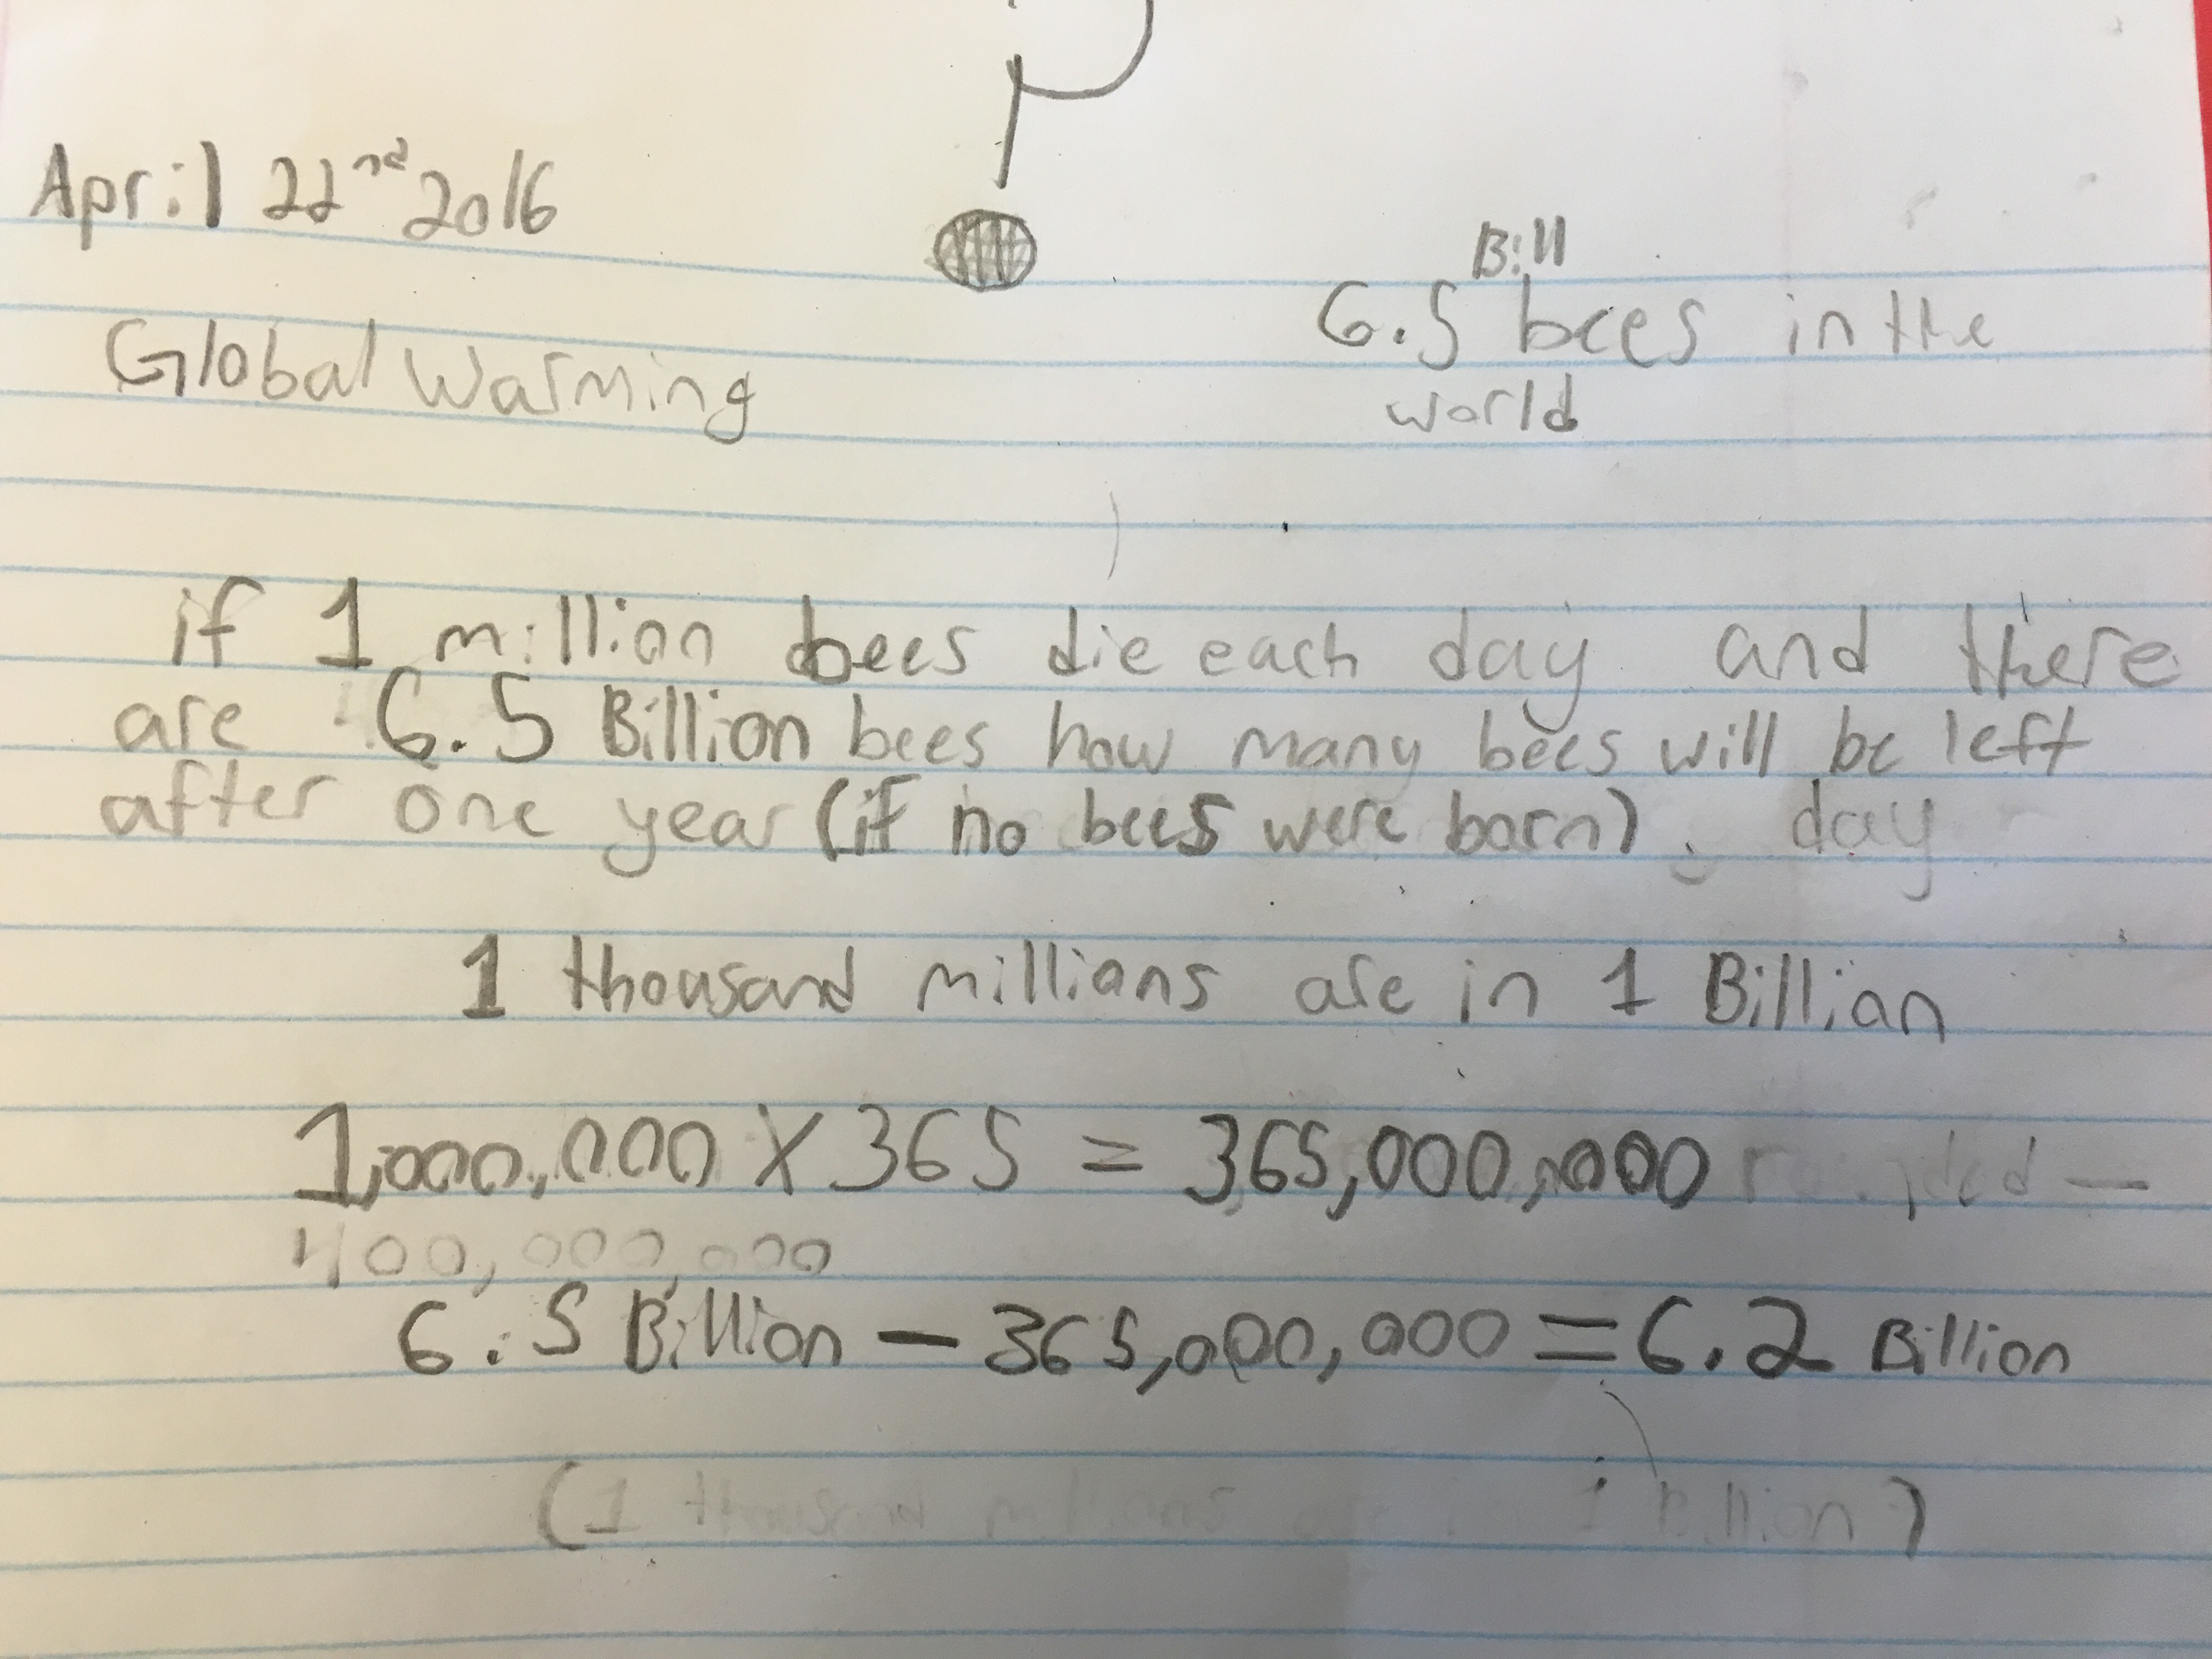 April 22nd 2016
Bill
6.5 bees in the
world
Global Warming
if 1 million bees die each day and there
are 6.5 Billion bees how many bees will be left
after one year (if no bees were born). day
1 thousand millians are in 1 Billian
1,000,000 X 365 = 365,000,000 rounded —
400,000,000
6.5 Billion — 365,000,000 = 6.2 Billion
(1 thousand millions are in 1 Billion)